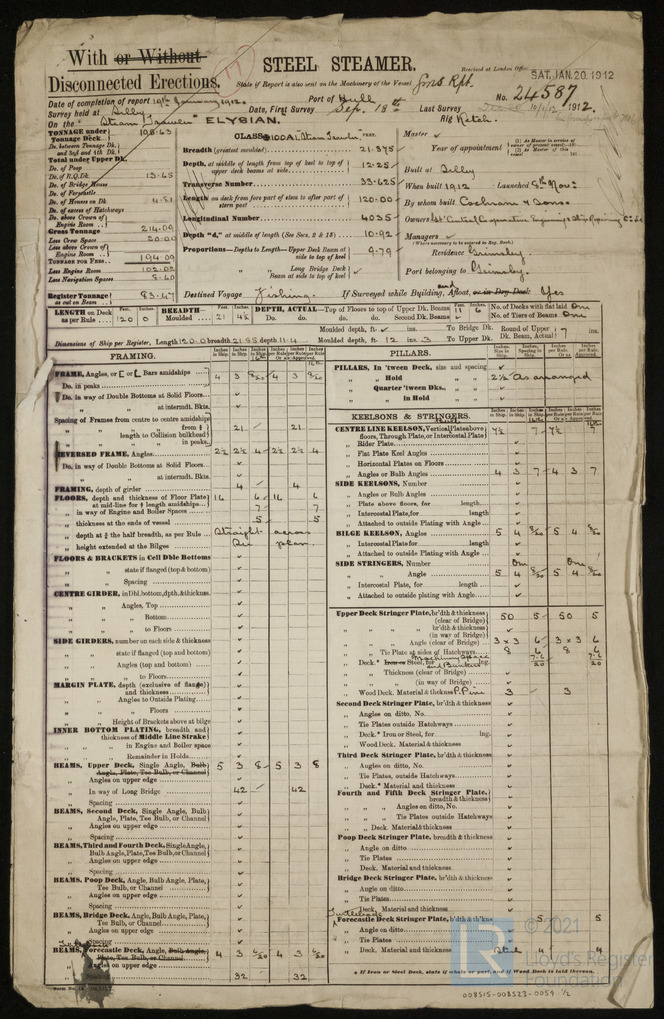 With or Without
Disconnected Erections.
STEEL STEAMER.
State if Report is also sent on the Machinery of the Vessel
Received at London Office
SAT. JAN. 20. 1912
No. 24587
Date of completion of report 19th January 1912.
Port of Hull
Survey held at Selby,
Date, First Survey Sep. 18th
Last Survey 1912.
On the "Steam Trawler" ELYSIAN.
Rig Ketch.
TONNAGE under Tonnage Deck 108.63
Do. between Tonnage Dk. and 3rd and 4th Dk.
Total under Upper Dk.
Do. of Poop
Do. of R.Q.Dk 13.65
Do. of Bridge House
Do. of Forecastle
Do. of Houses on Dk 4.81
Do. of excess of Hatchways
Do. above Crown of Engine Room
Gross Tonnage 214.09
Less Crew Space 20.00
Less above Crown of Engine Room
TONNAGE FOR FEES 194.09
Less Engine Room 102.02
Less Navigation Spaces 8.60
Register Tonnage as cut on Beam 83.47
CLASS 100A1 Steam Trawler
Breadth (greatest moulded) 21.375
Depth, at middle of length from top of keel to top of upper deck beams at side 12.25
Transverse Number 33.625
Length on deck from fore part of stem to after part of stern post 120.00
Longitudinal Number 4035
Depth "d," at middle of length (See Secs. 2 & 13) 10.92
Proportions—Depths to Length—Upper Deck Beam at side to top of keel 9.79
" Long Bridge Deck Beam at side to top of keel
Destined Voyage Fishing.
If Surveyed while Building, Afloat, and in Dry Dock Yes
Master
Year of appointment
Built at Selby
When built 1912 Launched 8th Nov.
By whom built Cochran & Sons.
Managers
(Where necessary to be entered in Reg. Book)
Residence Grimsby.
Port belonging to Grimsby.
LENGTH on Deck as per Rule 120 0
BREADTH—Moulded 21 4½
DEPTH, ACTUAL—Top of Floors to top of Upper Dk. Beams 11 6
Do. do. do. Second Dk. Beams
No. of Decks with flat laid One
No. of Tiers of Beams One
Dimensions of Ship per Register, Length 120.0 breadth 21.55 depth 11.4
Moulded depth, ft. To Bridge Dk.
Moulded depth, ft. 12 ins. 3 To Upper Dk.
Round of Upper Dk. Beam, Actual 7 ins.
FRAMING.
FRAME, Angles, or [ or L Bars amidships 4 3 8/20 4 3 8/20
Do. in peaks
Do. in way of Double Bottoms at Solid Floors
" " at intermdt. Bkts.
Spacing of Frames from centre to centre amidships
" " length to Collision bulkhead 21 21
" " in peaks
REVERSED FRAME, Angles 2½ 2½ 4 2½ 2½ 4
Do. in way of Double Bottoms at Solid Floors
" " at intermdt. Bkts.
FRAMING, depth of girder 4 4
FLOORS, depth and thickness of Floor Plate at mid-line for ½ length amidships 16 6 16 6
" in way of Engine and Boiler Spaces 7 7
" thickness at the ends of vessel 5 5
" depth at ¾ the half breadth, as per Rule Straight across
" height extended at the Bilges plan
FLOORS & BRACKETS in Cell Dble Bottoms
" state if flanged (top & bottom)
" Spacing
CENTRE GIRDER, in Dbl. bottom, dpth. & thickness
" Angles, Top
" " Bottom
" " to Floors
SIDE GIRDERS, number on each side & thickness
" state if flanged (top and bottom)
" Angles (top and bottom)
" to Floors
MARGIN PLATE, depth (exclusive of flange) and thickness
" Angles to Outside Plating
" " Floors
" Height of Brackets above at bilge
INNER BOTTOM PLATING, breadth and thickness of Middle Line Strake
" in Engine and Boiler space
" Remainder in Holds
BEAMS, Upper Deck, Single Angle, Bulb Angle, Plate, Tee Bulb, or Channel 5 3 8 5 3 8
" Angles on upper edge
" In way of Long Bridge 42 42
" Spacing
BEAMS, Second Deck, Single Angle, Bulb Angle, Plate, Tee Bulb, or Channel
" Angles on upper edge
" Spacing
BEAMS, Third and Fourth Deck, Single Angle, Bulb Angle, Plate, Tee Bulb, or Channel
" Angles on upper edge
" Spacing
BEAMS, Poop Deck, Angle, Bulb Angle, Plate, Tee Bulb, or Channel
" Angles on upper edge
" Spacing
BEAMS, Bridge Deck, Angle, Bulb Angle, Plate, Tee Bulb, or Channel
" Angles on upper edge
" Spacing
BEAMS, Forecastle Deck, Angle, Bulb Angle, Plate, Tee Bulb, or Channel 4 3 6/20 4 3 6/20
" Angles on upper edge
32 32
PILLARS.
PILLARS, In 'tween Deck, size and spacing
" " Hold 2½ As arranged
" Quarter 'tween Dks.,
" " in Hold
KEELSONS & STRINGERS.
CENTRE LINE KEELSON, Vertical Plate above floors, Through Plate, or Intercostal Plate 7½ 7 7½ 7
" Rider Plate
" Flat Plate Keel Angles
" Horizontal Plates on Floors
" Angles or Bulb Angles 4 3 7 4 3 7
SIDE KEELSONS, Number
" Angles or Bulb Angles
" Plate above floors, for length
" Intercostal Plate, for length
" Attached to outside Plating with Angle
BILGE KEELSON, Angles 5 4 8/20 5 4 8/20
" Intercostal Plate for length
" Attached to outside Plating with Angle
SIDE STRINGERS, Number One One
" Angle 5 4 8/20 5 4 8/20
" Intercostal Plate, for length
" Attached to outside plating with Angle
Upper Deck Stringer Plate, br'dth & thickness (clear of Bridge) 50 5 50 5
" " " br'dth & thickness (in way of Bridge)
" " Angle (clear of Bridge) 3 x 3 6 3 x 3 6
" Tie Plate at sides of Hatchways 8 6 8 6
" Deck.* Iron or Steel, for Machinery Space and Bunkers
" Thickness (clear of Bridge)
" " (in way of Bridge)
" Wood Deck, Material & thickness P. Pine 3 3
Second Deck Stringer Plate, br'dth & thickness
" Angles on ditto, No.
" Tie Plates outside Hatchways
" Deck.* Iron or Steel, for
" Wood Deck, Material & thickness
Third Deck Stringer Plate, br'dth & thickness
" Angles on ditto, No.
" Tie Plates, outside Hatchways
" Deck.* Material and thickness
Fourth and Fifth Deck Stringer Plate, breadth & thickness
" " Angles on ditto, No.
" " Tie Plates outside Hatchways
" Deck. Material & thickness
Poop Deck Stringer Plate, breadth & thickness
" Angle on ditto
" Tie Plates
" Deck, Material and thickness
Bridge Deck Stringer Plate, br'dth & thickness
" Angle on ditto
" Tie Plates
" Deck, Material and thickness
Forecastle Deck Stringer Plate, b'dth & th'kns 5 5
" Angle on ditto
" Tie Plates
" Deck, Material and thickness Steel 4 4
* If Iron or Steel Deck, state if whole or part, and if Wood Deck is laid thereon.
© 2021
LR
Lloyd's Register
Foundation
008515-008523-0059 1/2